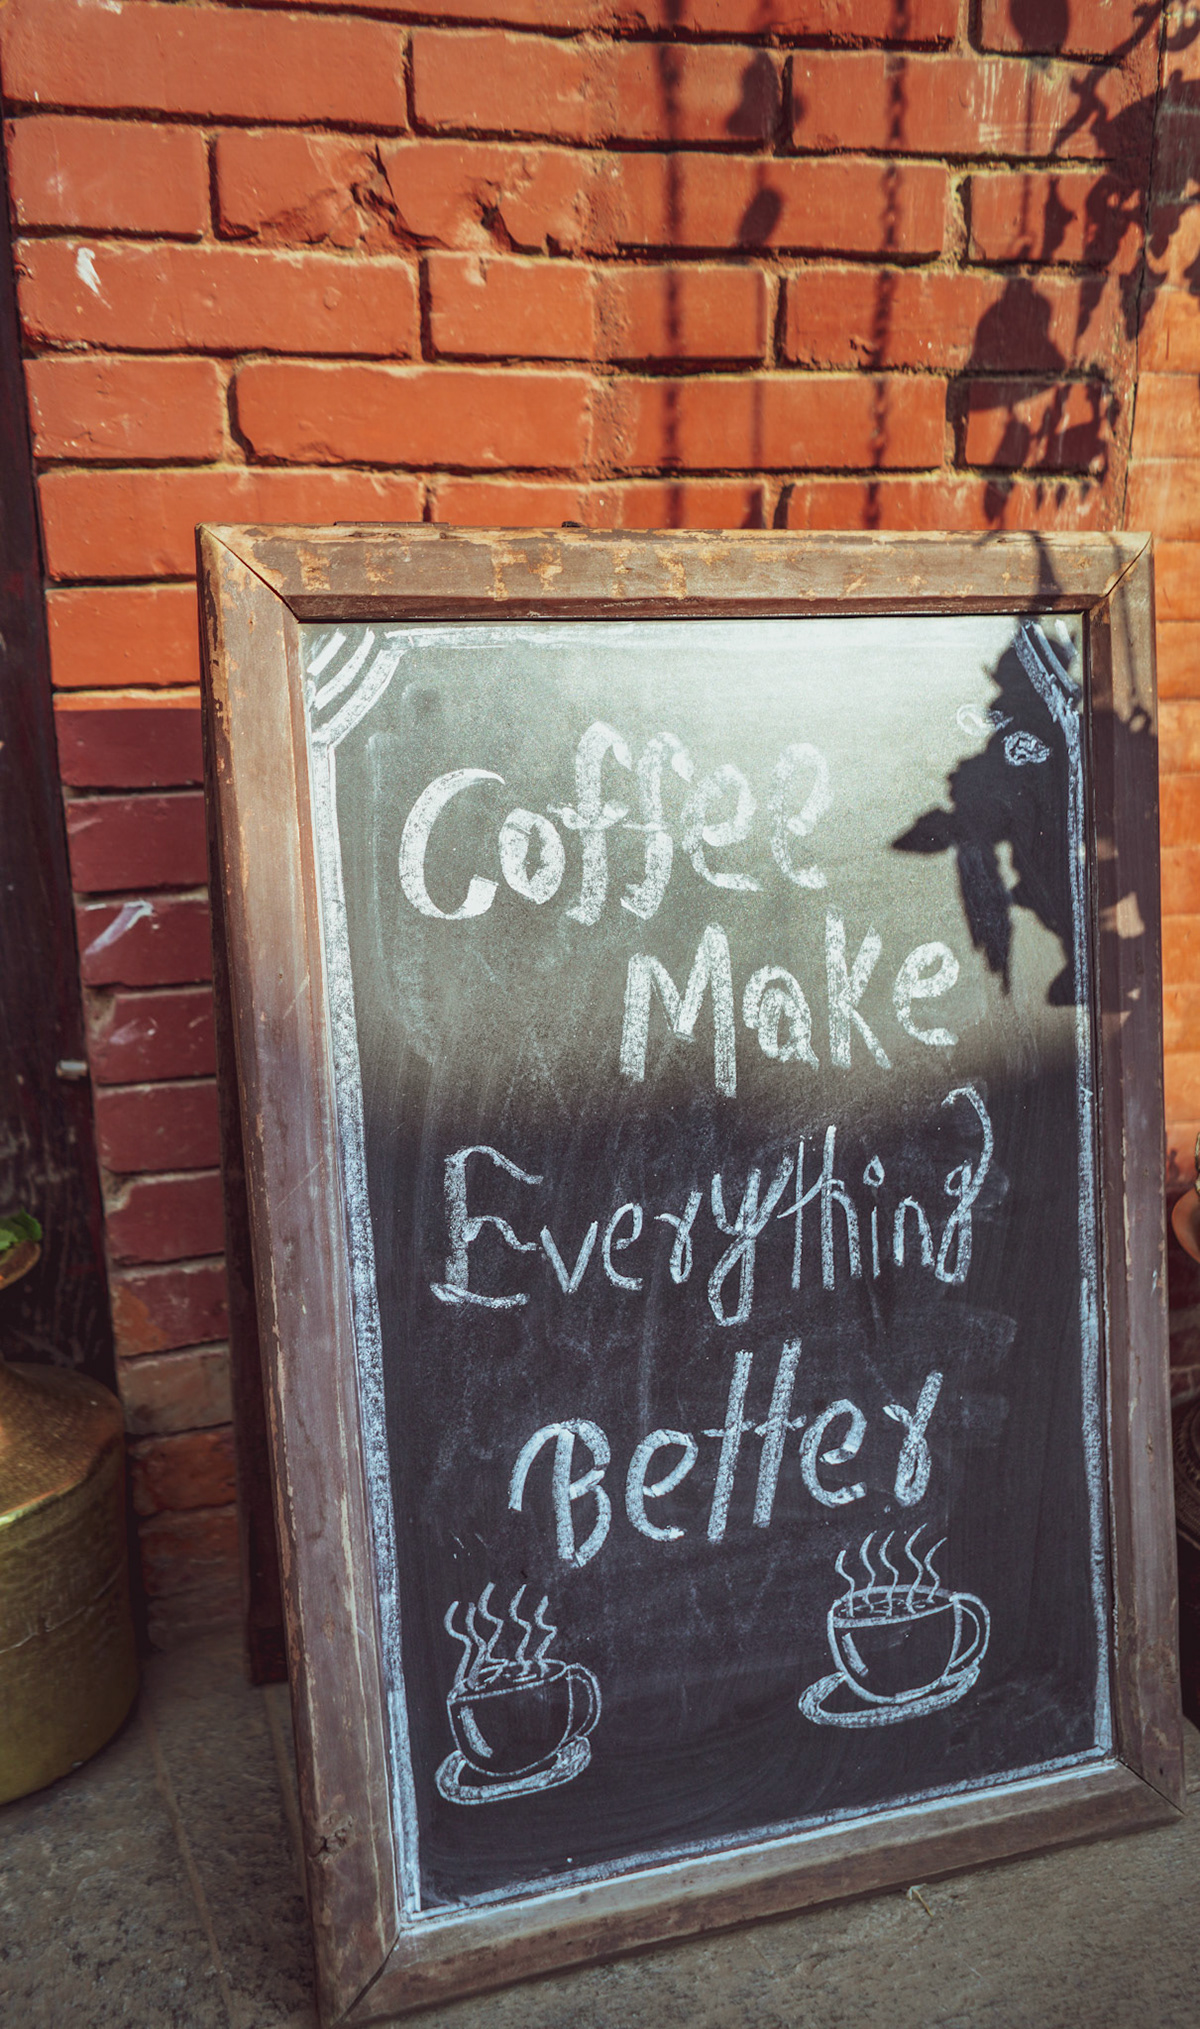 Coffee
Make
Everything
Better